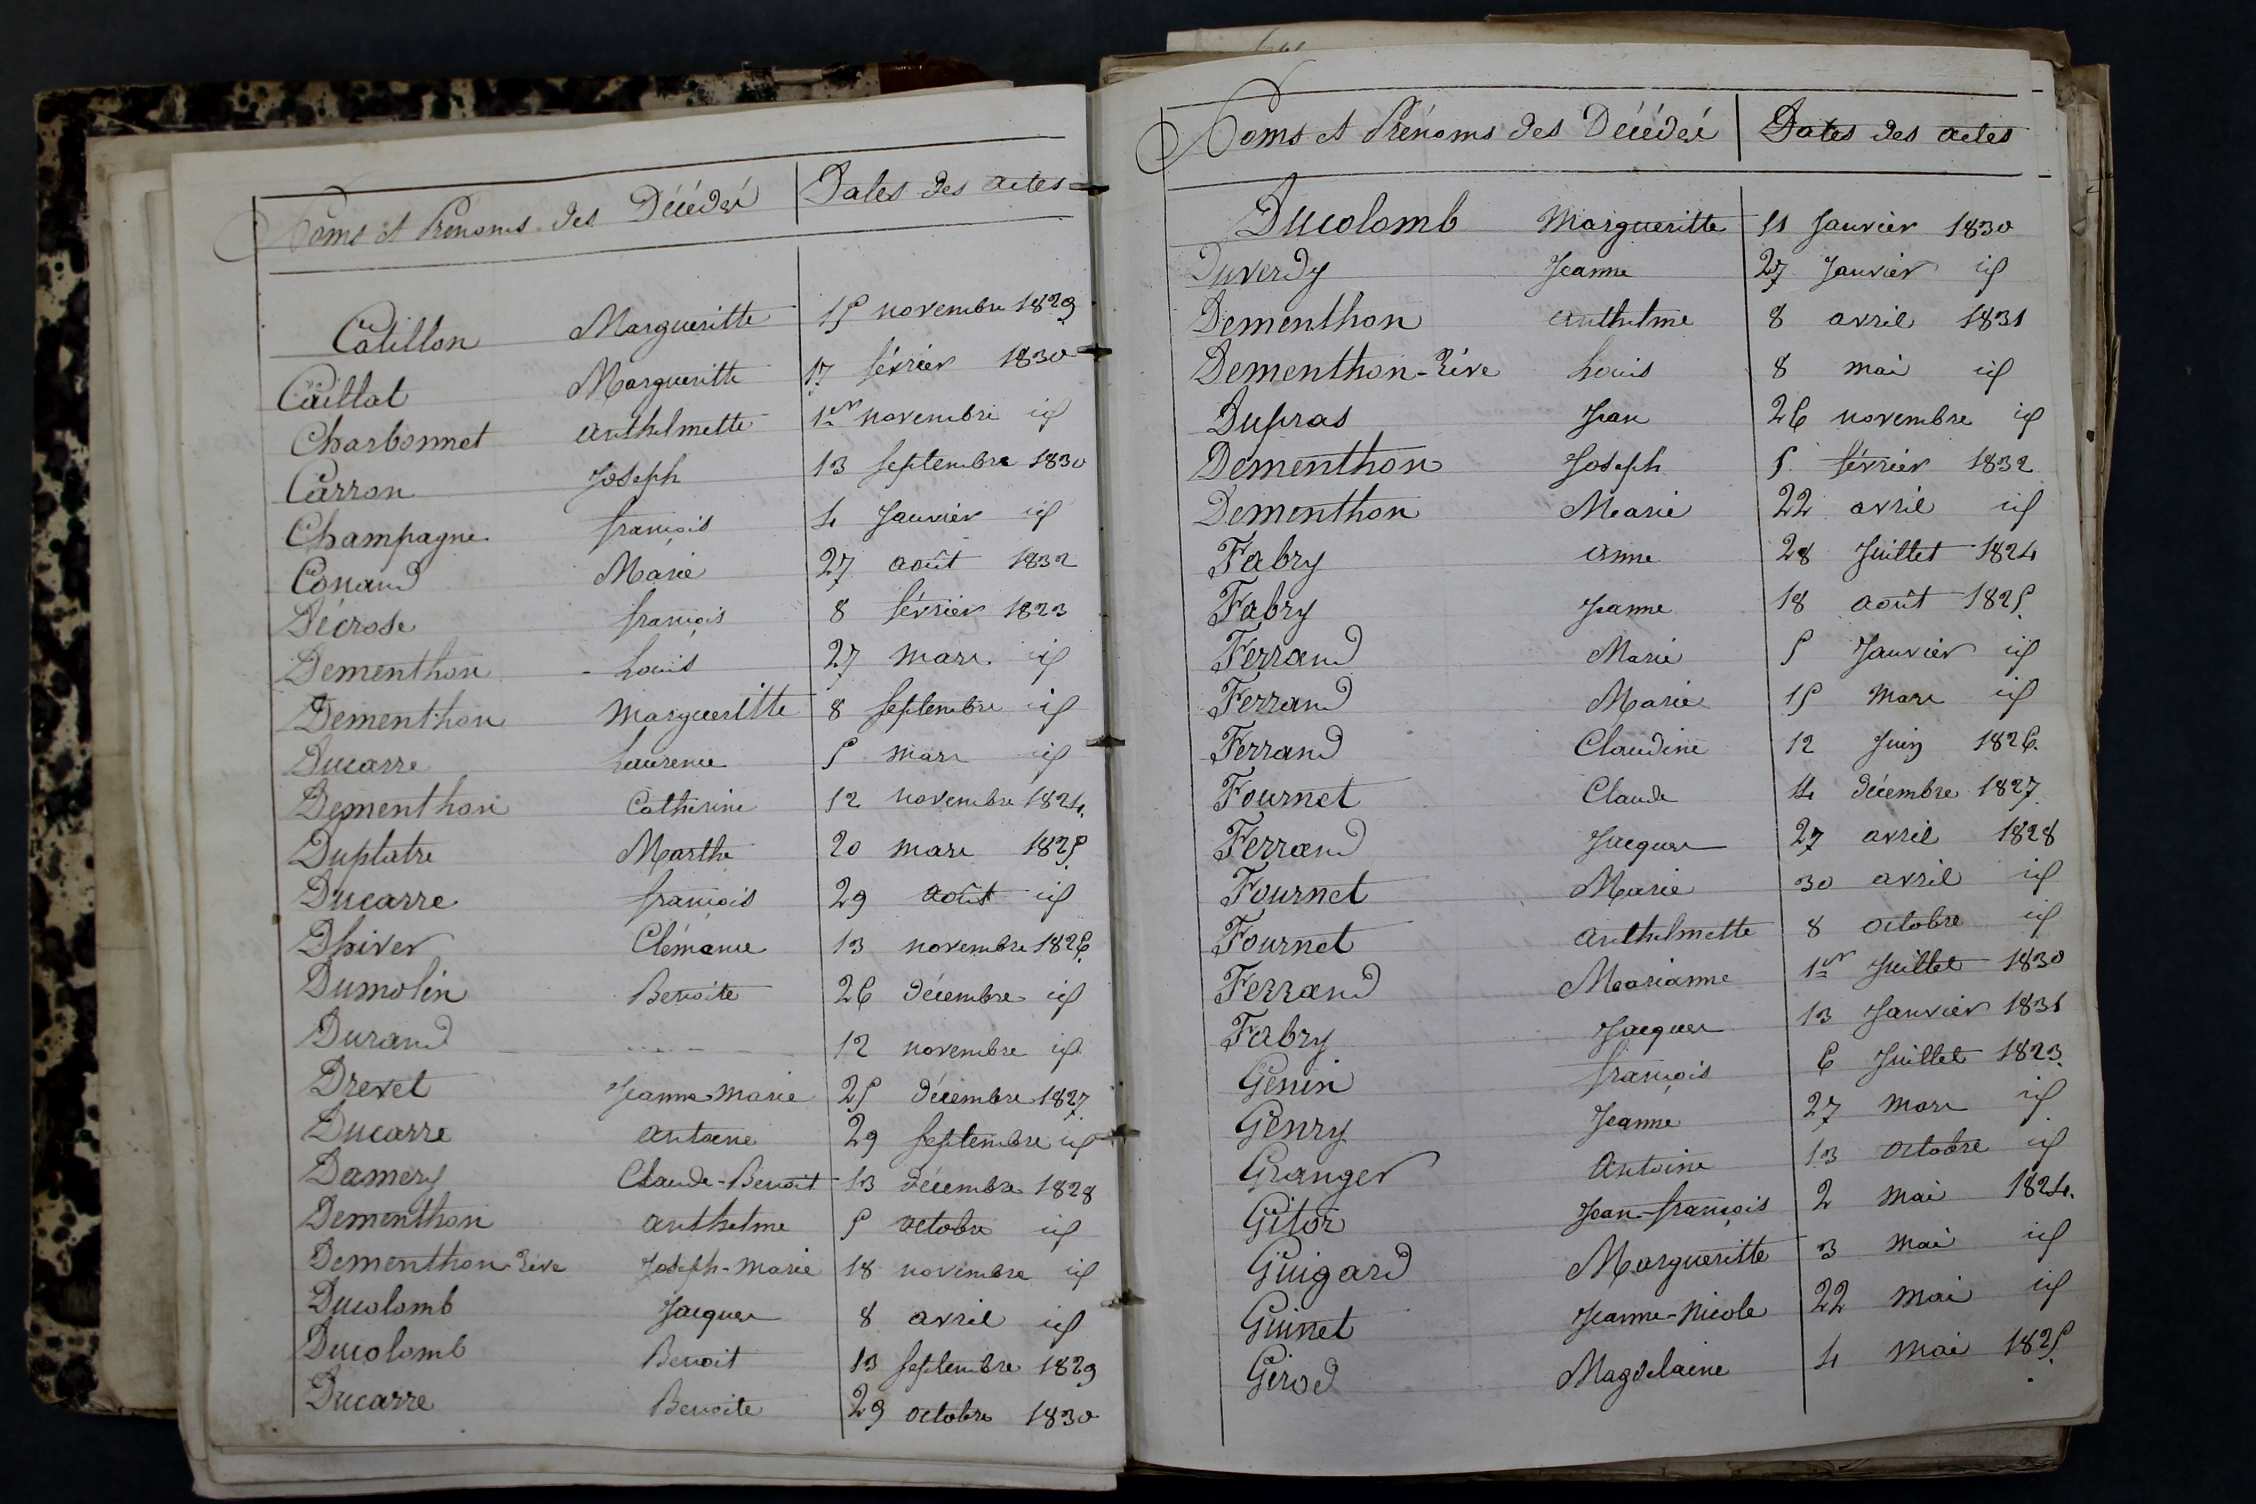 Noms et Prénoms des Décédés Dates des actes
Catillon Margueritte 15 novembre 1829
Caillat Margueritte 17 février 1830
Charbonnet anthelmette 1er novembre id
Carron Joseph 13 septembre 1830
Champagne françois 4 Janvier id
Conand Marie 27 août 1832
Décrose françois 8 février 1823
Dementhon Louis 27 mars id
Dementhon Margueritte 8 septembre id
Ducarre Laurence 5 mars id
Dementhon Catherine 12 novembre 1824
Duplatre Marthe 20 mars 1825
Ducarre françois 29 août id
Dhiver Clémence 13 novembre 1826
Dumolin Benoite 26 décembre id
Durand 12 novembre id
Drevet Jeanne-marie 25 décembre 1827
Ducarre antoine 29 septembre id
Damery Claude-Benoit 13 décembre 1828
Dementhon anthelme 5 octobre id
Dementhon-Rive Joseph-marie 18 novembre id
Ducolomb Jacques 8 avril id
Ducolomb Benoit 13 septembre 1829
Ducarre Benoite 29 octobre 1830
Noms et Prénoms des Décédés Dates des actes
Ducolomb Margueritte 11 Janvier 1830
Duverdy Jeanne 27 Janvier id
Dementhon anthelme 8 avril 1831
Dementhon-Rive Louis 8 mai id
Dupras Jean 26 novembre id
Dementhon Joseph 5 février 1832
Dementhon Marie 22 avril id
Fabry anne 28 Juillet 1824
Fabry Jeanne 18 août 1825
Ferrand Marie 5 Janvier id
Ferrand Marie 15 mars id
Ferrand Claudine 12 Juin 1826
Fournet Claude 4 décembre 1827
Ferrand Jacques 27 avril 1828
Fournet Marie 30 avril id
Fournet anthelmette 8 octobre id
Ferrand Marianne 1er Juillet 1830
Fabry Jacques 13 Janvier 1831
Genin françois 6 Juillet 1823
Genry Jeanne 27 mars id
Granger Antoine 13 octobre id
Gitoz Jean-françois 2 mai 1824
Guigard Margueritte 3 mai id
Guinet Jeanne-Nicole 22 mai id
Girod Magdelaine 4 mai 1825